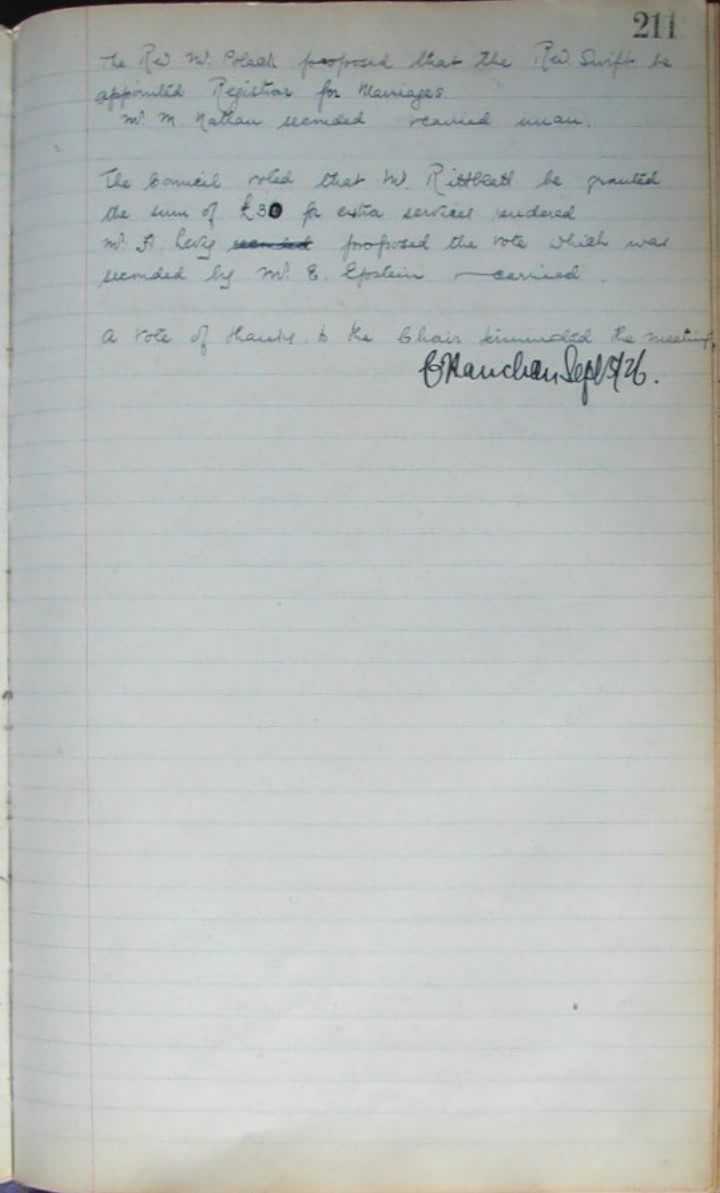 211
The Rev Mr. Polack proposed that the Rev Swift be
appointed Registrar for Marriages
Mr. M. Nathan seconded carried unan.
The Council voted that Mr. Rittblatt be granted
the sum of £30 for extra services rendered
Mr. A. Levy seconded proposed the vote which was
seconded by Mr. E. Epstein — carried.
A vote of thanks to the Chair terminated the meeting.
Sept 5/26.